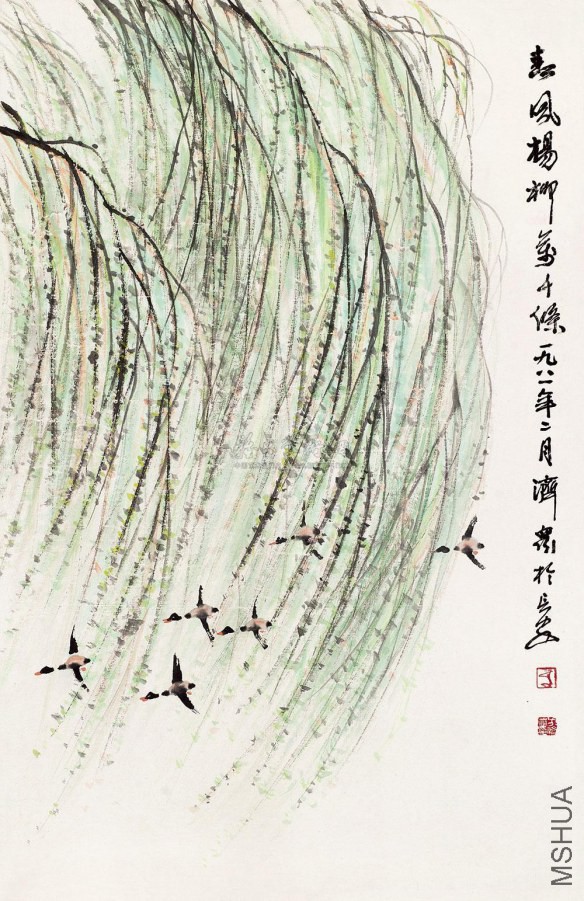 春风楊柳萬千條一九八一年二月濟衆於長安
MSHUA